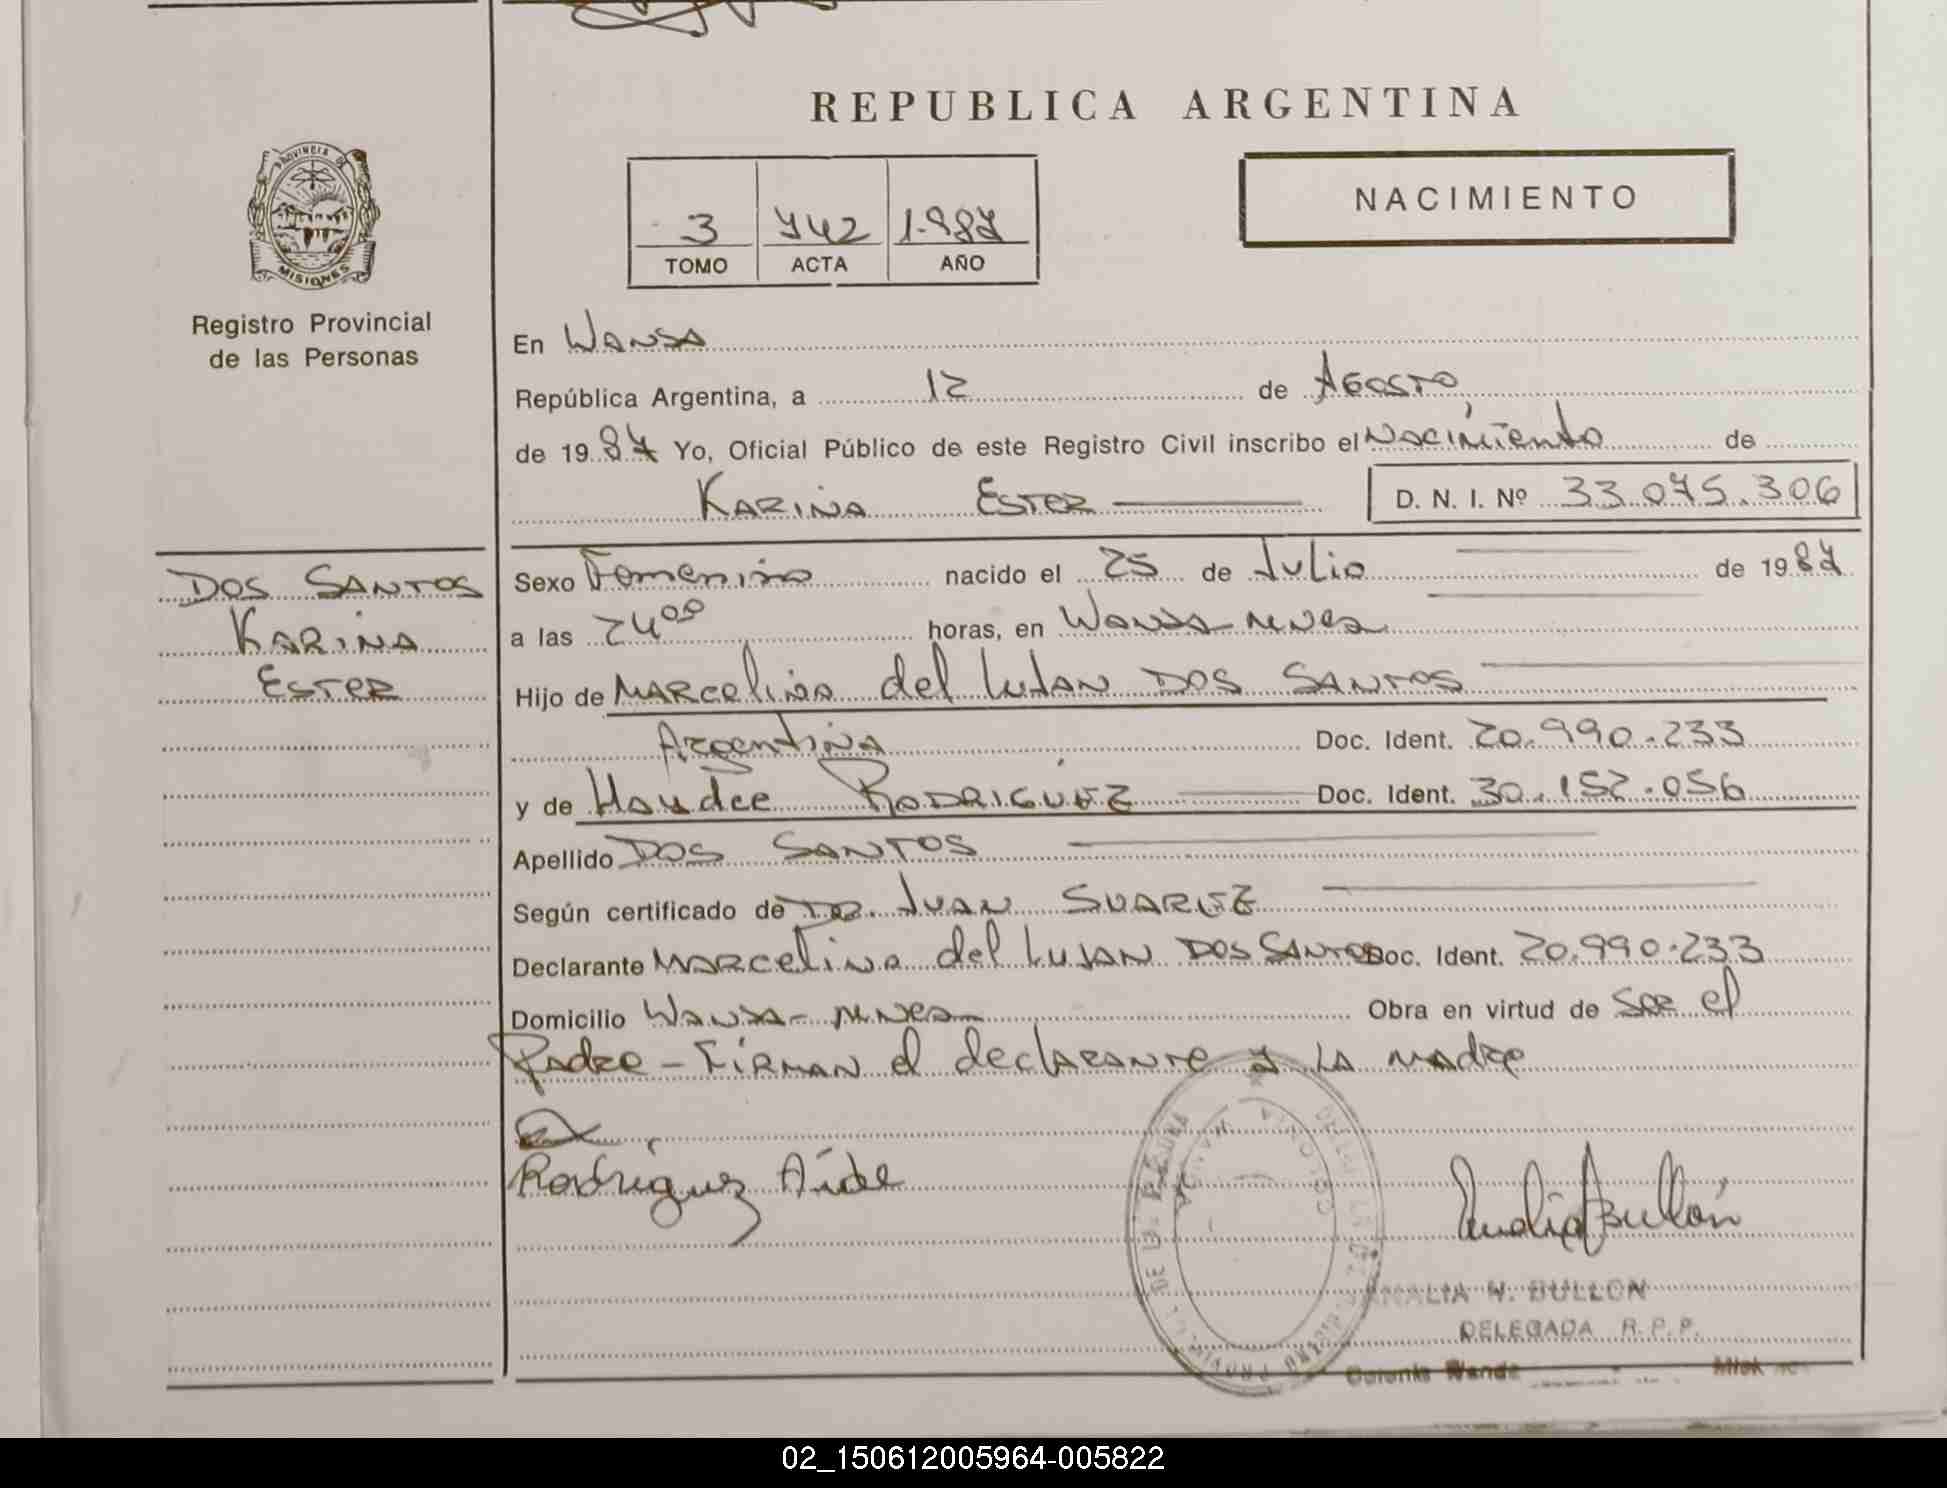 REPUBLICA ARGENTINA
PROVINCIA DE
MISIONES
Registro Provincial
de las Personas
3 742 1.987
TOMO ACTA AÑO
NACIMIENTO
En Wanda
República Argentina, a 12 de Agosto
de 1987 Yo, Oficial Público de este Registro Civil inscribo el Nacimiento de
Karina Ester D. N. I. Nº 33.075.306
DOS SANTOS
KARINA
ESTER
Sexo Femenino nacido el 25 de Julio de 1987
a las 24⁰⁰ horas, en Wanda
Hijo de Marcelino del Lujan DOS SANTOS
Argentina Doc. Ident. 20.990.233
y de Haydee RODRIGUEZ Doc. Ident. 30.152.056
Apellido DOS SANTOS
Según certificado de Dr. Juan SUAREZ
Declarante Marcelino del Lujan DOS SANTOS Doc. Ident. 20.990.233
Domicilio Wanda Obra en virtud de ser el
Padre - Firman el declarante y la madre
Rodriguez Aide
AMALIA N. BULLON
DELEGADA R.P.P.
02_150612005964-005822